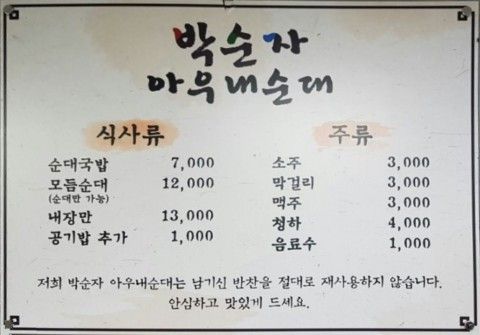 박순자
아우내순대
식사류
순대국밥 7,000
모듬순대 12,000
(순대만 가능)
내장만 13,000
공기밥 추가 1,000
주류
소주 3,000
막걸리 3,000
맥주 3,000
청하 4,000
음료수 1,000
저희 박순자 아우내순대는 남기신 반찬을 절대로 재사용하지 않습니다.
안심하고 맛있게 드세요.